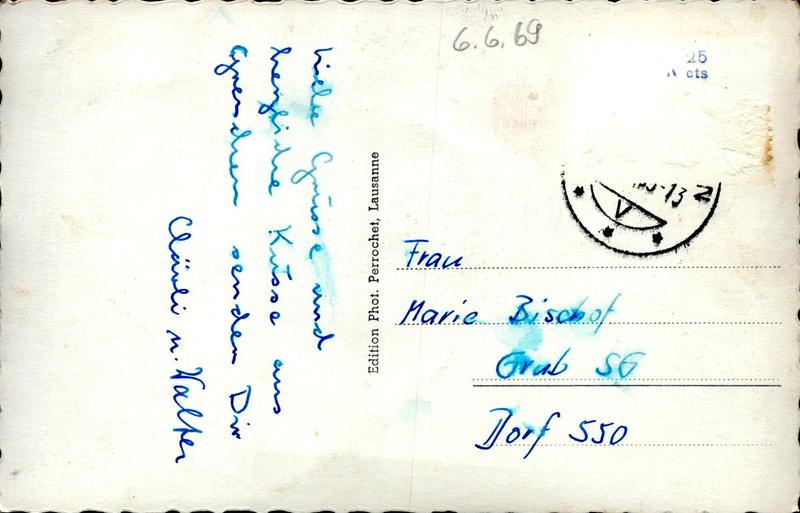 6.6.69
25
cts
13
V
Viele Grüsse und
herzliche Küsse aus
senden Dir
Cläuli u. Walter
Edition Phot. Perrochet, Lausanne
Frau
Marie Bischof
Grub SG
Dorf 550